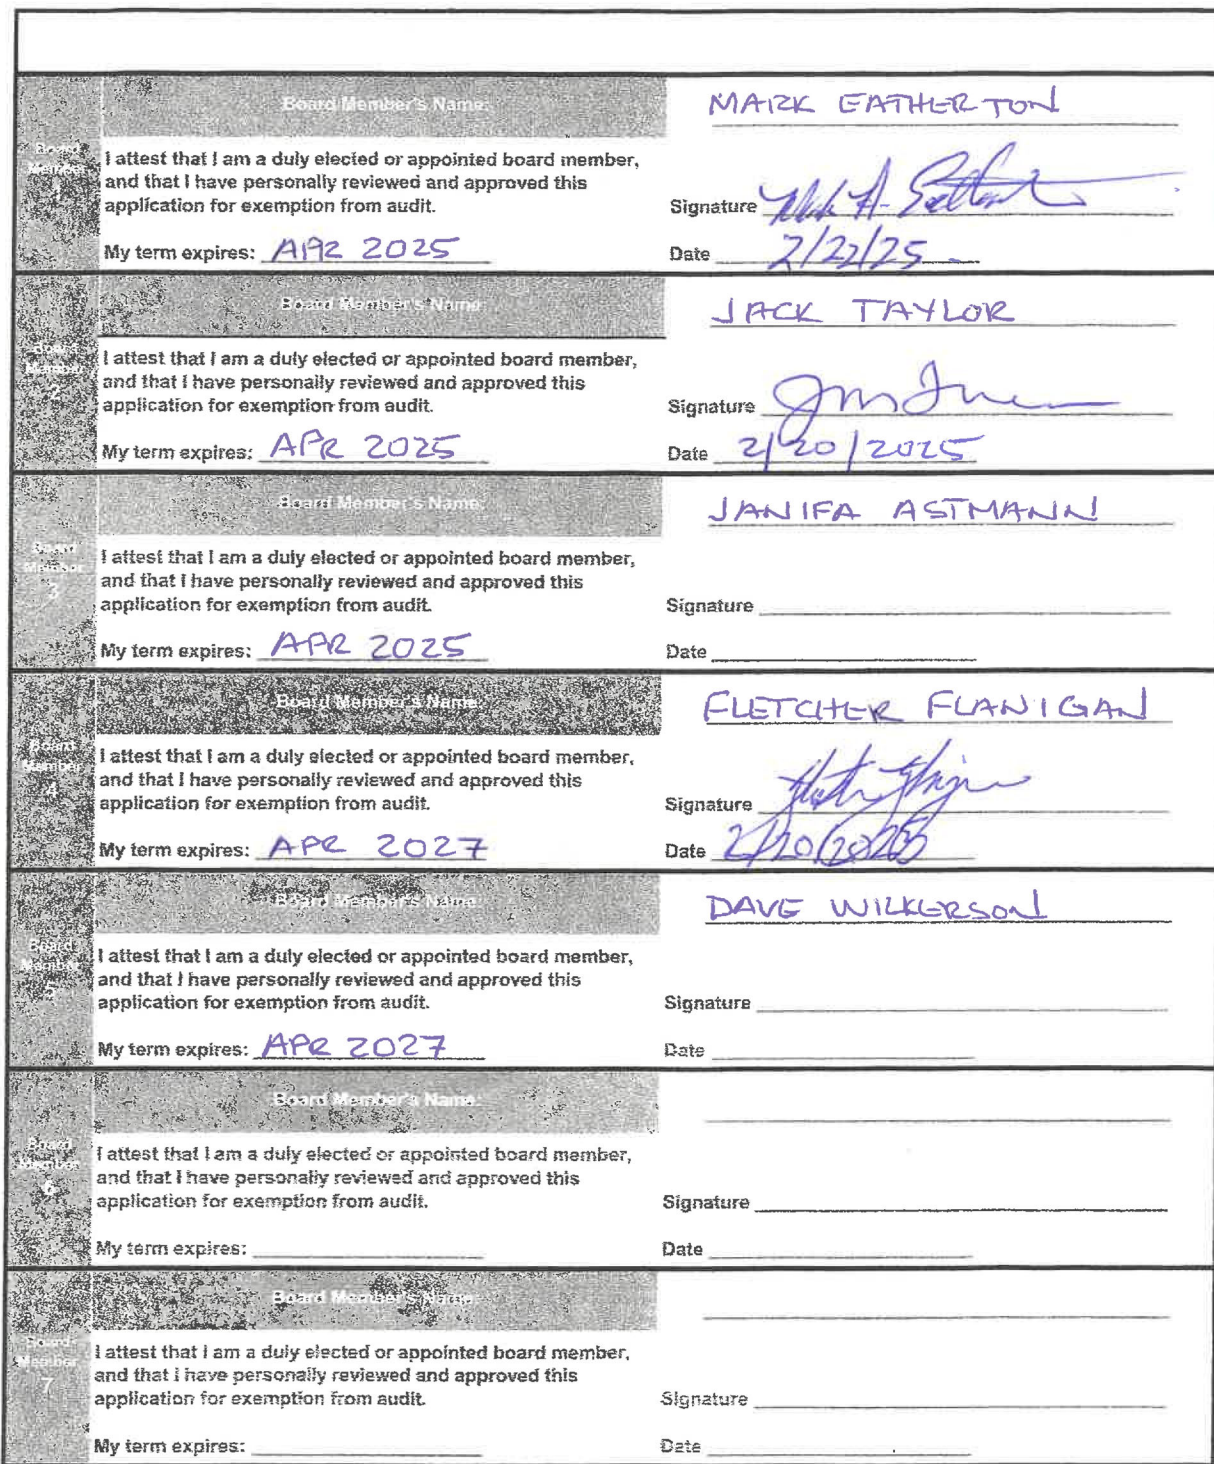 Board Member's Name: MARK EATHERTON
Board Member 1
I attest that I am a duly elected or appointed board member,
and that I have personally reviewed and approved this
application for exemption from audit.
Signature Mark A. Eatherton
My term expires: APR 2025 Date 2/22/25
Board Member's Name: JACK TAYLOR
Board Member 2
I attest that I am a duly elected or appointed board member,
and that I have personally reviewed and approved this
application for exemption from audit.
Signature
My term expires: APR 2025 Date 2/20/2025
Board Member's Name: JANIFA ASTMANN
Board Member 3
I attest that I am a duly elected or appointed board member,
and that I have personally reviewed and approved this
application for exemption from audit.
Signature
My term expires: APR 2025 Date
Board Member's Name: FLETCHER FLANIGAN
Board Member 4
I attest that I am a duly elected or appointed board member,
and that I have personally reviewed and approved this
application for exemption from audit.
Signature
My term expires: APR 2027 Date 2/20/2025
Board Member's Name: DAVE WILKERSON
Board Member 5
I attest that I am a duly elected or appointed board member,
and that I have personally reviewed and approved this
application for exemption from audit.
Signature
My term expires: APR 2027 Date
Board Member's Name:
Board Member 6
I attest that I am a duly elected or appointed board member,
and that I have personally reviewed and approved this
application for exemption from audit.
Signature
My term expires: Date
Board Member's Name:
Board Member 7
I attest that I am a duly elected or appointed board member,
and that I have personally reviewed and approved this
application for exemption from audit.
Signature
My term expires: Date